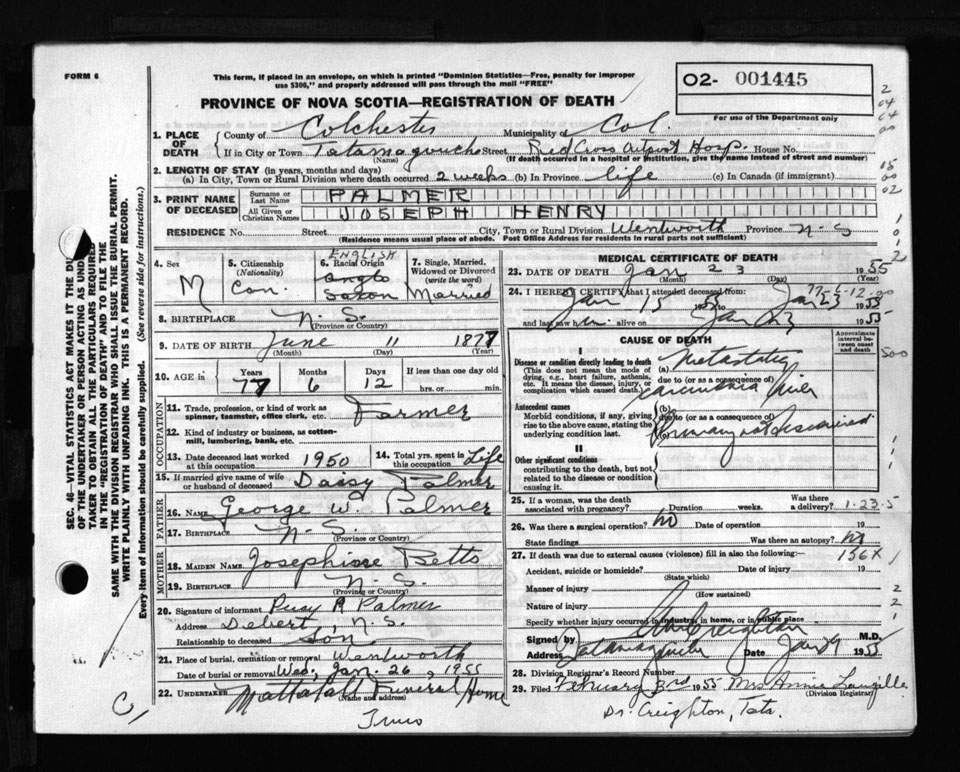 FORM 6
This form, if placed in an envelope, on which is printed "Dominion Statistics—Free, penalty for improper
use $300," and properly addressed will pass through the mail "FREE"
O2- 001445
For use of the Department only
PROVINCE OF NOVA SCOTIA—REGISTRATION OF DEATH
1. PLACE OF DEATH County of Colchester Municipality of Col.
If in City or Town Tatamagouche Street Red Cross Outpost Hosp. House No.
(Name) (If death occurred in a hospital or institution, give the name instead of street and number)
2. LENGTH OF STAY (in years, months and days)
(a) In City, Town or Rural Division where death occurred 2 weeks (b) In Province life (c) In Canada (if immigrant)
3. PRINT NAME OF DECEASED Surname or Last Name PALMER
All Given or Christian Names JOSEPH HENRY
RESIDENCE No. Street City, Town or Rural Division Wentworth Province N-S
(Residence means usual place of abode. Post Office Address for residents in rural parts not sufficient)
4. Sex M
5. Citizenship (Nationality) Can.
6. Racial Origin ENGLISH Anglo Saxon
7. Single, Married, Widowed or Divorced (write the word) Married
8. BIRTHPLACE N.S.
(Province or Country)
9. DATE OF BIRTH June 11 1877
(Month) (Day) (Year)
10. AGE in Years 77 Months 6 Days 12 If less than one day old hrs. or min.
OCCUPATION
11. Trade, profession, or kind of work as spinner, teamster, office clerk, etc. Farmer
12. Kind of industry or business, as cotton-mill, lumbering, bank, etc.
13. Date deceased last worked at this occupation 1950
14. Total yrs. spent in this occupation Life
15. If married give name of wife or husband of deceased Daisy Palmer
FATHER
16. NAME George W. Palmer
17. BIRTHPLACE N-S.
(Province or Country)
MOTHER
18. MAIDEN NAME Josephine Betts
19. BIRTHPLACE N-S.
(Province or Country)
20. Signature of informant Percy R Palmer
Address Debert, N.S.
Relationship to deceased Son
21. Place of burial, cremation or removal Wentworth
Date of burial or removal Wed. Jan. 26, 1955
22. UNDERTAKER Mattatall Funeral Home
(Name and address)
Truro
MEDICAL CERTIFICATE OF DEATH
23. DATE OF DEATH Jan 23 1955
(Month) (Day)
24. I HEREBY CERTIFY that I attended deceased from:
Jan 15 55 to Jan 23 1955
77-6-12-00
and last saw him alive on Jan 23 1955
CAUSE OF DEATH
Approximate interval between onset and death
I
Disease or condition directly leading to death
(This does not mean the mode of dying, e.g., heart failure, asthenia, etc. It means the disease, injury, or complication which caused death.)
(a) Metastatic
due to (or as a consequence of)
Carcinoma Liver
Antecedent causes
Morbid conditions, if any, giving rise to the above cause, stating the underlying condition last.
(b)
due to (or as a consequence of)
Primary not discovered
II
Other significant conditions
contributing to the death, but not related to the disease or condition causing it.
25. If a woman, was the death associated with pregnancy? Duration weeks. Was there a delivery?
1-23-5
26. Was there a surgical operation? No Date of operation 19
State findings Was there an autopsy? No
27. If death was due to external causes (violence) fill in also the following:—
156X
Accident, suicide or homicide? Date of injury 19
(State which)
Manner of injury
(How sustained)
Nature of injury
Specify whether injury occurred in industry, in home, or in public place
Signed by Creighton M.D.
Address Tatamagouche Date Jan 29 1955
28. Division Registrar's Record No.
29. Filed February 3rd 1955 Mrs Annie Langille
(Division Registrar)
Dr. Creighton, Tata.
SEC. 46—VITAL STATISTICS ACT MAKES IT THE
OF THE UNDERTAKER OR PERSON ACTING AS
TAKER TO OBTAIN ALL THE PARTICULARS REQUIRED
IN THE "REGISTRATION OF DEATH" AND TO FILE THE
SAME WITH THE DIVISION REGISTRAR WHO SHALL ISSUE THE BURIAL PERMIT.
WRITE PLAINLY WITH UNFADING INK. THIS IS A PERMANENT RECORD.
Every item of information should be carefully supplied. (See reverse side for instructions.)